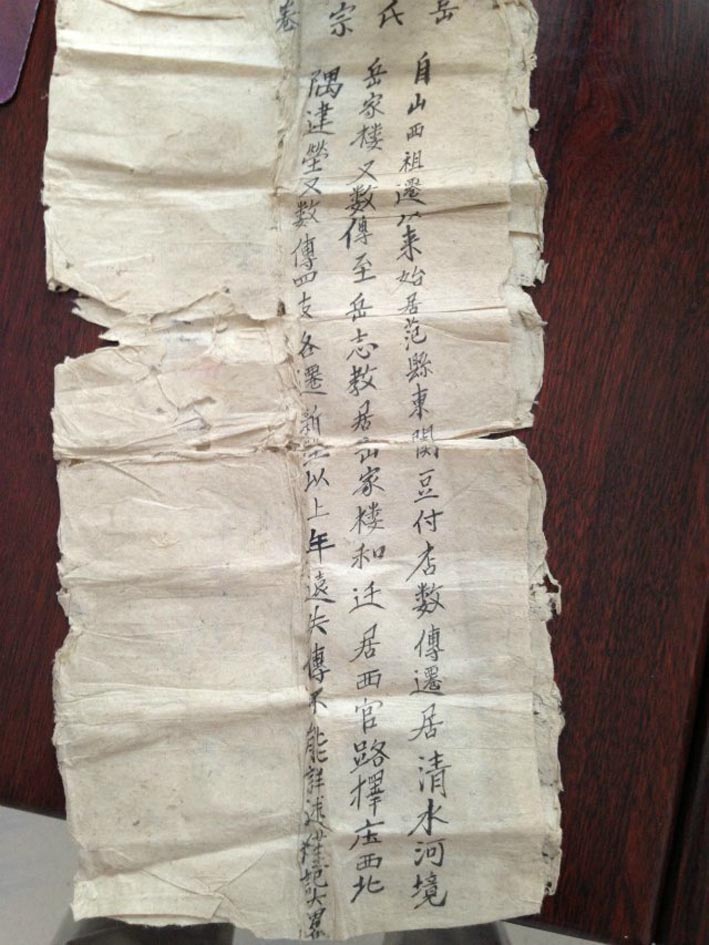 岳氏宗卷
自山西祖遷莱始居范縣東関豆付店数傳遷居清水河境
岳家楼又数傳至岳志教居岳家楼和迁居西官路擇庄西北
隅建塋又数傳四支各遷新塋以上年遠失傳不能詳述謹記大畧